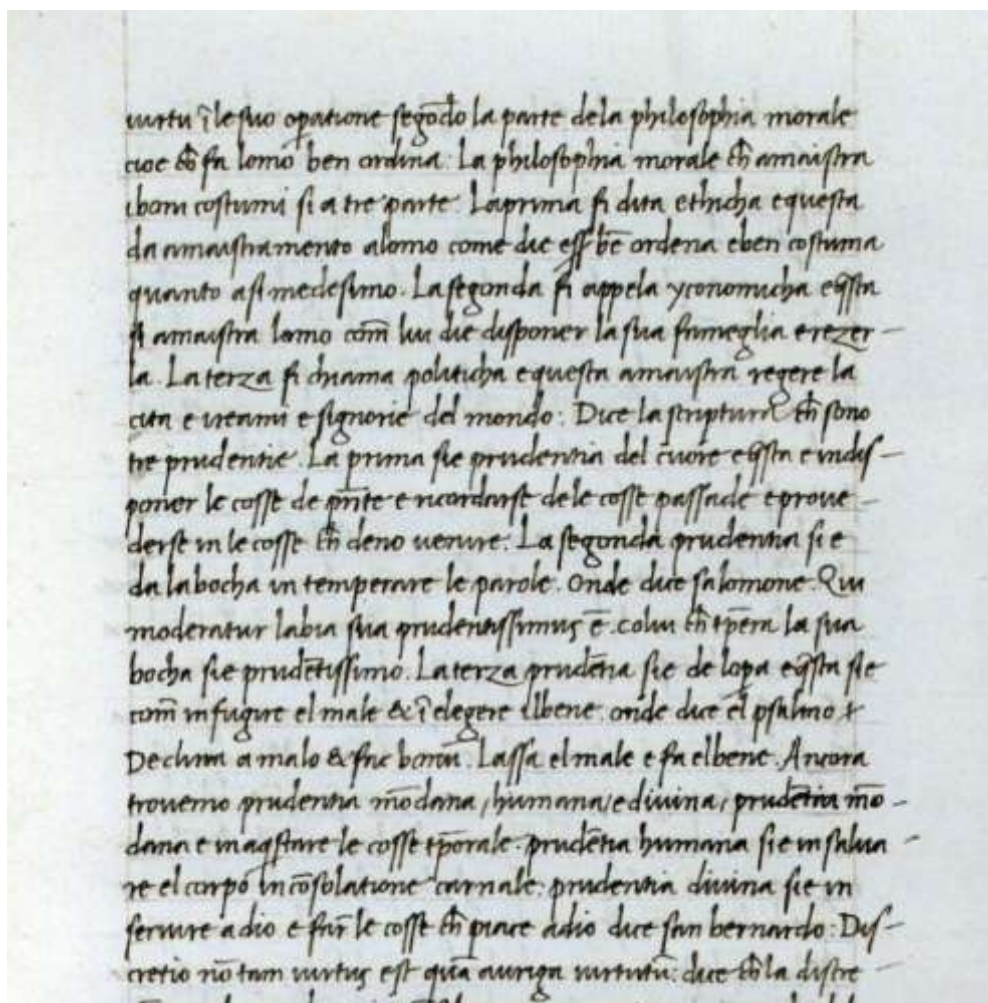 virtu ĩ le suo op̱atione segōdo la parte dela philosophia morale
cioe ch̄ fa lomo ben ordina. La philosophia morale ch̄ amaistra
iboni costumi si a tre parte. La prima si dita ethicha e questa
da amaistramento alomo come die eẜ bē ordena e ben costuma
quanto a si medesimo. La segonda si appela yconomicha e q̄sta
si amaistra lomo com̄ lui die disponer la sua fameglia e rezer-
la. La terza si chiama politicha e questa amaistra regere la
cita e i reami e signorie del mondo: Dice la scriptura ch̄ sono
tre prudentie. La prima sie prudentia del cuore e q̄sta e in dis-
poner le cosse de pn̄te e ricordarse dele cosse passade e prove-
derse in le cosse ch̄ deno uenire. La segonda prudentia si e
da la bocha in temperare le parole. Onde dice salomone. Qui
moderatur labia sua prudentissimus ē. colui ch̄ tp̄era la sua
bocha sie prudētissimo. La terza prudētia sie de lop̱a e q̄sta sie
com̄ in fugire el male & ĩ elegere il bene. onde dice el psalmo
Declina a malo & fac bonū. Lassa el male e fa el bene. Ancora
trovemo prudentia mōdana, humana, e divina, prudētia mō-
dana e in aq̄stare le cosse tp̄orale. prudētia humana sie in salua-
re el corpo in cōsolatione carnale: prudentia divina sie in
seruire a dio e far le cosse ch̄ piace a dio dice san bernardo: Dis-
cretio nō tam virtus est quā auriga virtutū: dice ch̄ la discre-